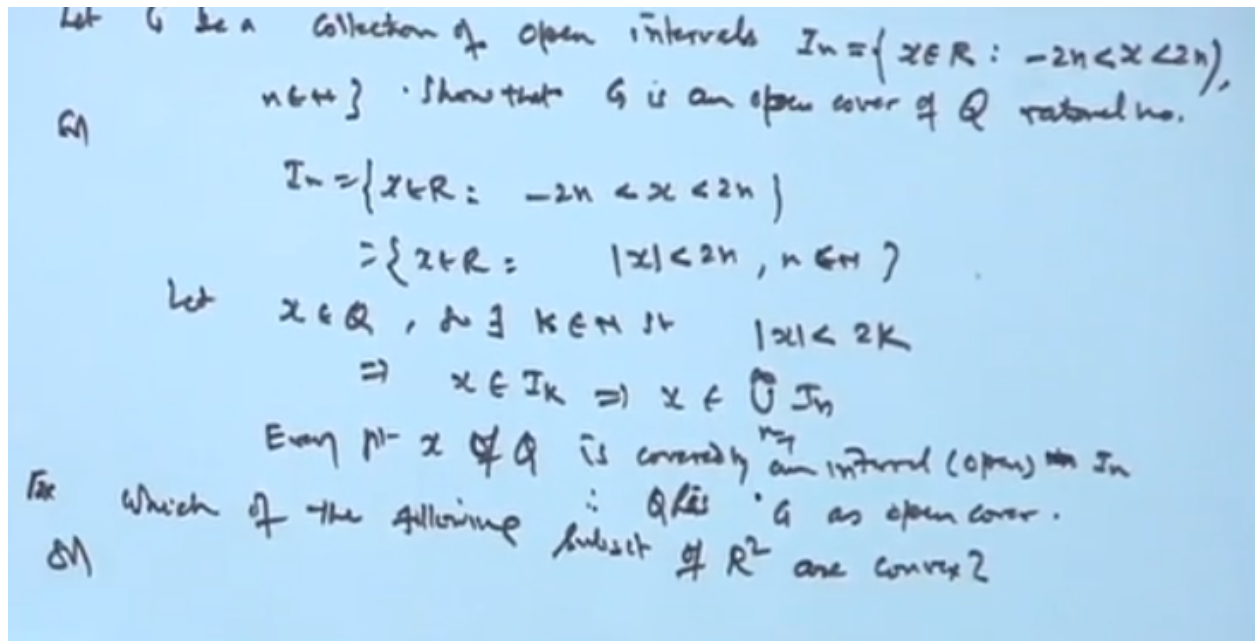 Let G be a collection of open intervals In = { x ∈ R : -2n < x < 2n),
n ∈ N } . Show that G is an open cover of Q rational no.
Sol
In = { x ∈ R : -2n < x < 2n }
= { x ∈ R : |x| < 2n , n ∈ N }
Let x ∈ Q , so ∃ K ∈ N st |x| < 2K
⇒ x ∈ IK ⇒ x ∈ ∪ In
n=1
Every pt x of Q is covered by an interval (open) In
∴ Q has G as open cover .
Ex Which of the following subset of R² are convex ?
Sol